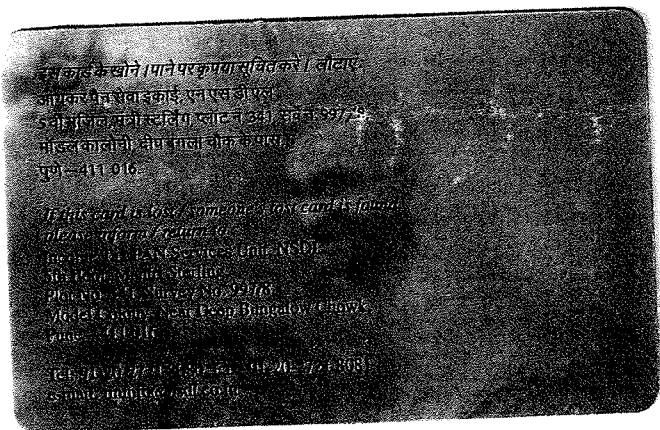 इस कार्ड के खोने / पाने पर कृपया सूचित करें / लौटाएं:
आयकर पैन सेवा इकाई, एन एस डी एल
5 वी मंजिल, मंत्री स्टर्लिंग, प्लाट नं. 341, सर्वे नं. 997/8,
मॉडल कालोनी, दीप बंगला चौक के पास,
पुणे – 411 016.
If this card is lost / someone's lost card is found,
please inform / return to :
Income Tax PAN Services Unit, NSDL
5th Floor, Mantri Sterling,
Plot No. 341, Survey No. 997/8,
Model Colony, Near Deep Bungalow Chowk,
Pune - 411 016.
Tel: 91-20-2721 8080, Fax: 91-20-2721 8081